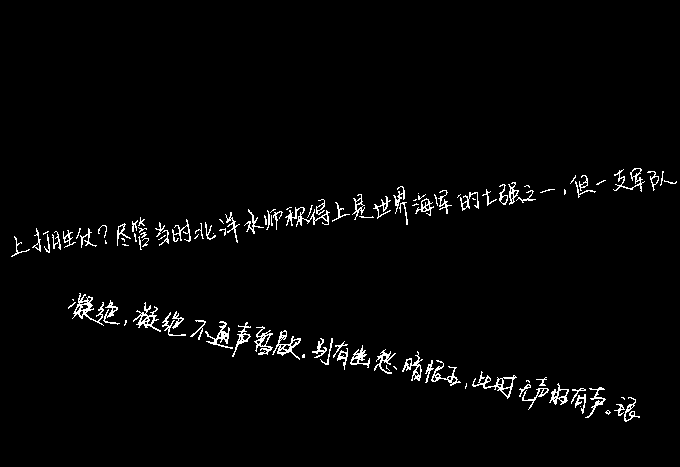 上打胜仗?尽管当时北洋水师称得上是世界海军的七强之一,但一支军队
凝绝,凝绝不通声暂歇.别有幽愁暗恨生,此时无声胜有声。银